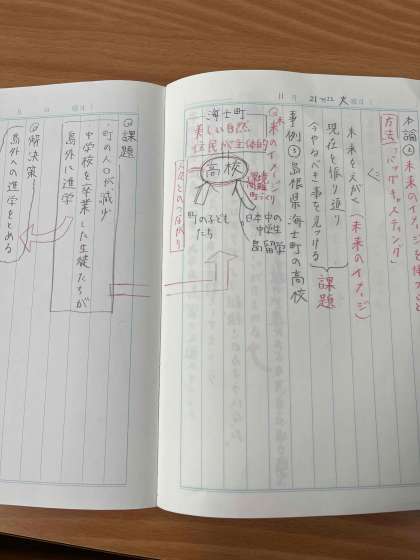 11月 21~22 火曜日
本論② 未来のイメージを持つこと
方法「バックキャスティング」
未来をえがく（未来のイメージ）
現在を振り返り
今やるべき事を見つける
課題
事例③ 島根県海士町の高校
◎未来のイメージ
海士町
美しい自然
住民が主体的
高校
人々とのつながり
町の子ども
たち
日本中の
中学生
島留学
◎課題
・町の人口が減少
中学校を卒業した生徒たちが
島外に進学
◎解決策
島外への進学をとめる